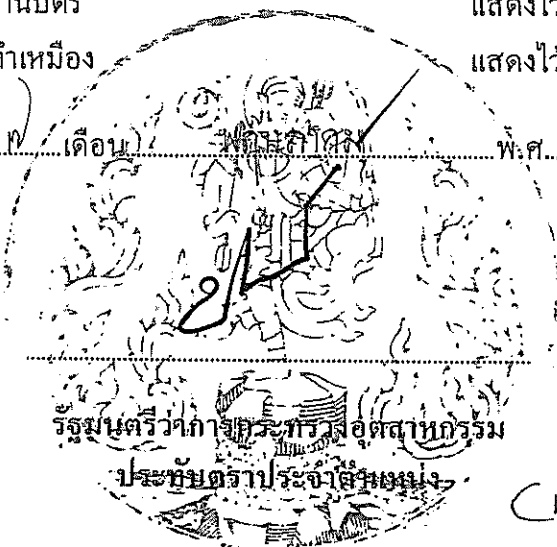 แสดงไว้
ทำเหมือง แสดงไว้
เดือน พฤษภาคม พ.ศ.
รัฐมนตรีว่าการกระทรวงอุตสาหกรรม
ประทับตราประจำตำแหน่ง